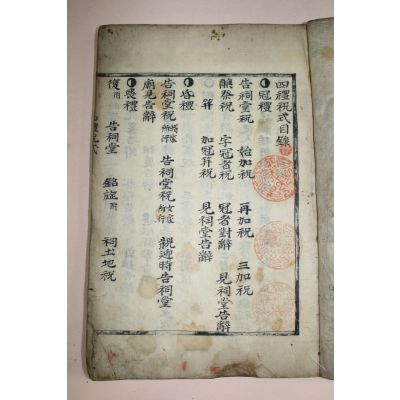 四禮祝式目錄
冠禮
告祠堂祝 始加祝 再加祝 三加祝
醮祭祝 字冠者祝 冠者對辭 見祠堂告辭
笄 加冠笄祝 見祠堂告辭
昏禮
告祠堂祝 壻家所行 告祠堂祝 女家所行 親迎時告祠堂
廟見告辭
喪禮
復 告祠堂 銘旌 祠土地祝